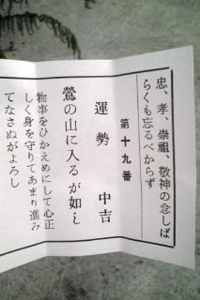 忠、孝、崇祖、敬神の念しば
らくも忘るべからず
第十九番
運勢 中吉
鶯の山に入るが如し
物事をひかえめにして心正
しく身を守りてあまり進み
てなさぬがよろし